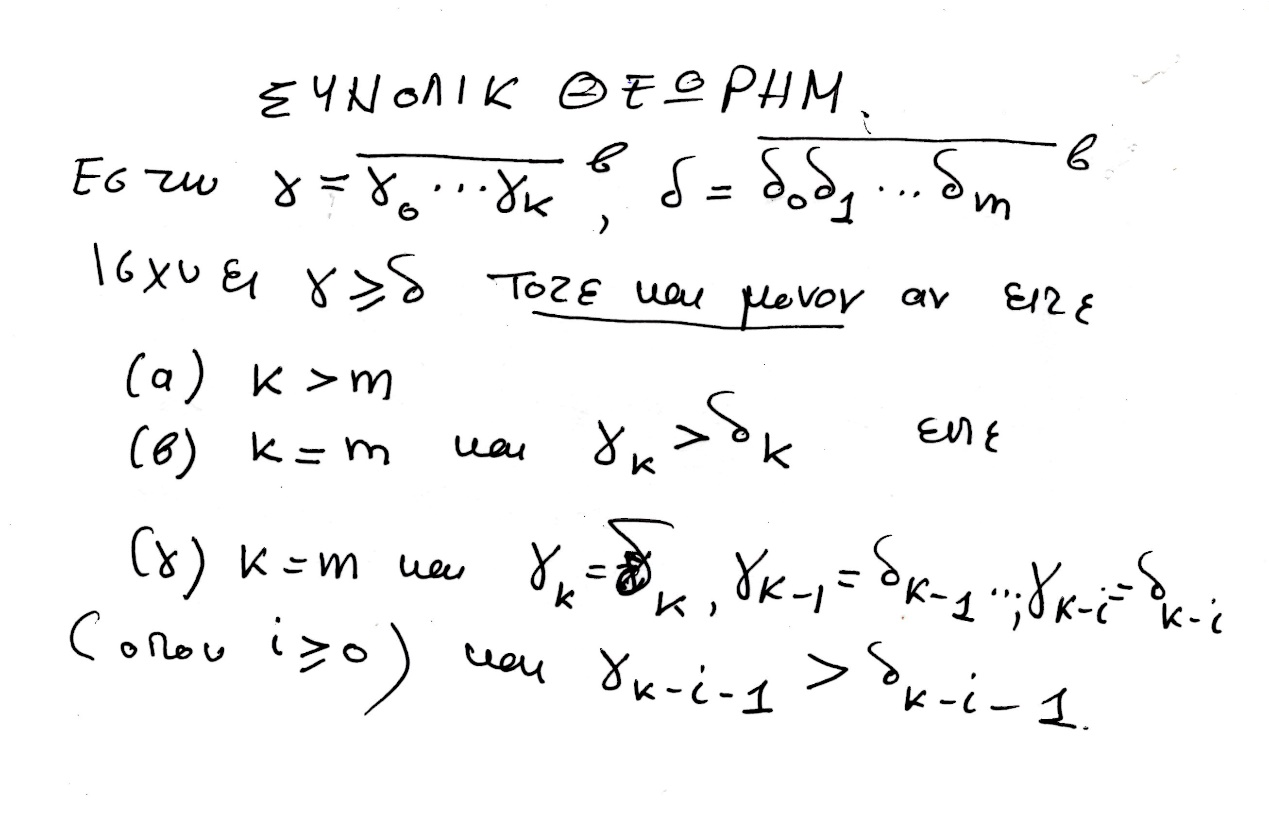 ΣΥΝΟΛΙΚ ΘΕΩΡΗΜ.
Εστω γ = γ₀ ... γκ ᵝ, δ = δ₀δ₁ ... δm ᵝ
Ισχυει γ ⩾ δ τοτε και μονον αν ειτε
(α) κ > m
(β) κ = m και γκ > δκ ειτε
(γ) κ = m και γκ = δκ, γκ-1 = δκ-1 ..., γκ-i = δκ-i
(οπου i ⩾ 0) και γκ-i-1 > δκ-i-1.